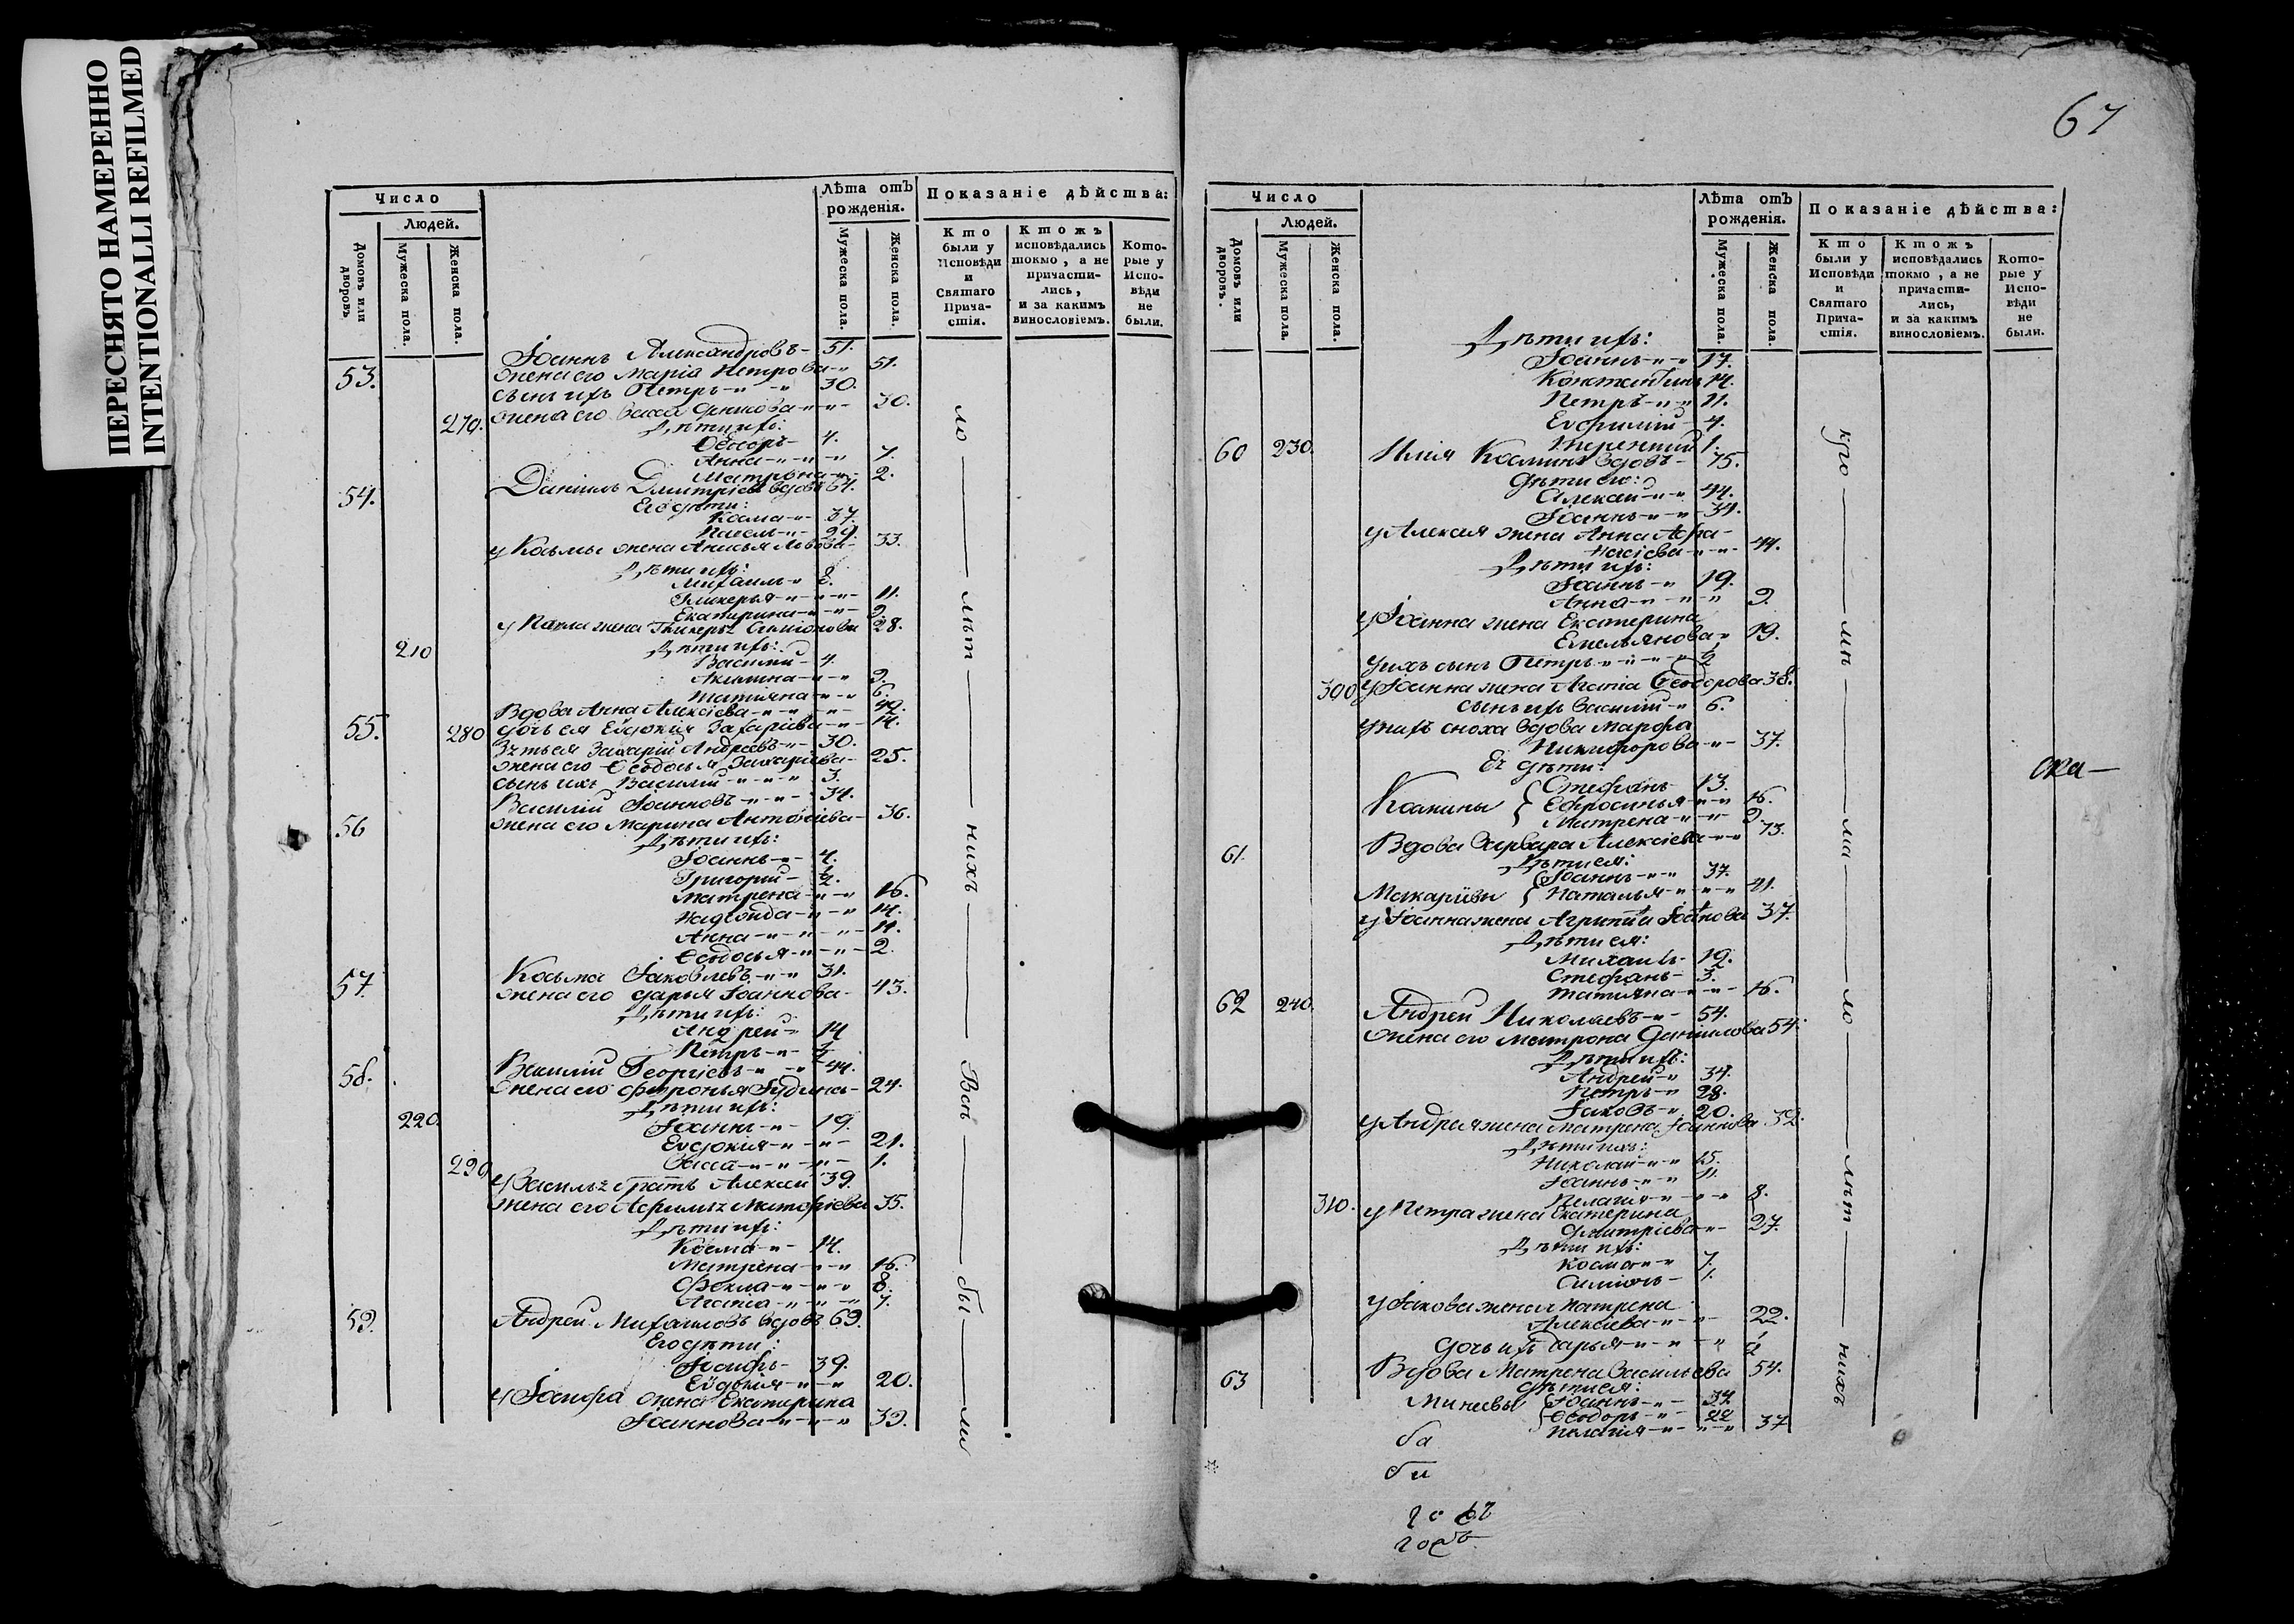 ПЕРЕСНЯТО НАМЕРЕННО
INTENTIONALLI REFILMED
Число
Людей.
Домовъ или дворовъ
Мужеска пола.
Женска пола.
Лѣта отъ рожденія.
Мужеска пола.
Женска пола.
Показаніе дѣйства:
Кто были у Исповѣди и Святаго Прича- стія.
Ктожъ исповѣдались токмо, а не причасти- лись, и за какимъ винословіемъ.
Кото- рые у Испо- вѣди не были.
53. Іоаннъ Александровъ - 51.
жена его Марія Петрова - 51.
сынъ ихъ Петръ - 30.
жена его Васса - 30.
270. Дѣти ихъ:
Ѳеодоръ - 4.
Анна - 7.
Матрона - 2.
54. Даніилъ Димитріевъ вдовъ 64.
Его дѣти:
Косма - 37.
Павелъ - 29.
у Космы жена Анисья Львова - 33.
Дѣти ихъ:
Михаилъ
Гликерья - 11.
Екатерина - 9.
у Павла жена Гликерья Симіонова 28.
210 Дѣти ихъ:
Василий - 4.
Акилина - 9.
Татіяна - 6.
55. Вдова Анна Алексіева - 49.
280 дочь ея Евдокія Захаріева - 14.
Зять ея Захарій Андреевъ - 30.
жена его Ѳеодосья Захаріева - 25.
сынъ ихъ Василий - 3.
56 Василий Іоанновъ - 34.
жена его Марина Антоніева - 36.
Дѣти ихъ:
Іоаннъ - 4.
Григорий -
Матрена - 16.
Надежда - 14.
Анна - 11.
Ѳеодосья - 2.
57. Косьма Іаковлевъ - 31.
жена его Дарья Іоаннова - 43.
Дѣти ихъ:
Андрей - 14
Петръ -
58. Василий Георгіевъ - 44.
жена его - 24.
Дѣти ихъ:
220. Іоаннъ - 19.
Евдокія - 21.
290 Васса - 1.
у Василья братъ Алексей 39.
жена его Афимья 35.
Дѣти ихъ:
Косма - 14.
Матрена - 16.
Фекла - 8.
Агапіа - 7.
59. Андрей Михаиловъ вдовъ 69.
Его дѣти:
Іосифъ - 39.
Евдокія - 20.
у Іосифа жена Екатерина
Іоаннова - 39.
ло — лѣт — нихъ — Всѣ — бы — ли
67
Число
Людей.
Домовъ или дворовъ.
Мужеска пола.
Женска пола.
Лѣта отъ рожденія.
Мужеска пола.
Женска пола.
Показаніе дѣйства:
Кто были у Исповѣди и Святаго Прича- стія.
Ктожъ исповѣдались токмо, а не причасти- лись, и за какимъ винословіемъ.
Кото- рые у Испо- вѣди не были.
Дѣти ихъ:
Іоаннъ - 17.
Константинъ 14.
Петръ - 11.
Евфимий - 4.
230. Терентий 1.
60 Илия Космин вдовъ - 75.
Дѣти его:
Алексей - 44.
Іоаннъ - 34.
у Алексея жена Анна Афа-
насіева - 44.
Дѣти ихъ:
Іоаннъ - 19.
Анна - 9.
у Іоанна жена Екатерина
Емельянова - 19.
у ихъ сынъ Петръ -
300 у Іоанна жена Агапіа Ѳеодорова 38.
сынъ ихъ Василий - 6.
у нихъ сноха вдова Марфа
Никифорова - 37.
Ея дѣти:
Стефанъ 13.
Ефросинья - 16.
Матрена - 9.
61. Вдова Варвара Алексіева - 73.
Дѣти ея:
Макаріевы
Іоаннъ - 37.
Наталья - 21.
у Іоанна жена Агрипина Іоанова 37.
Дѣти ея:
Михаилъ - 19.
Стефанъ - 3.
Татияна - 16.
62 240. Андрей Николаевъ - 54.
жена его Матрона Даниилова 54.
Дѣти ихъ:
Андрей - 34.
Петръ - 28.
Іаковъ - 20.
у Андрея жена Матрена Іоаннова 32.
Дѣти ихъ:
Николай - 15.
Іоаннъ - 11.
310. Пелагія - 8.
у Петра жена Екатерина
Димитріева - 27.
Дѣти ихъ:
Косма - 7.
Симіонъ - 1.
у Іакова жена Матрена
Алексіева - 22.
дочь ихъ Дарья -
63 Вдова Матрена Васильева 54.
дѣти ея:
Минеевы
Іоаннъ - 34
Ѳеодоръ - 22
Пелагія - 37
кро — мѣ — ма — ло — лѣт — нихъ
ска —
ба
би
годъ